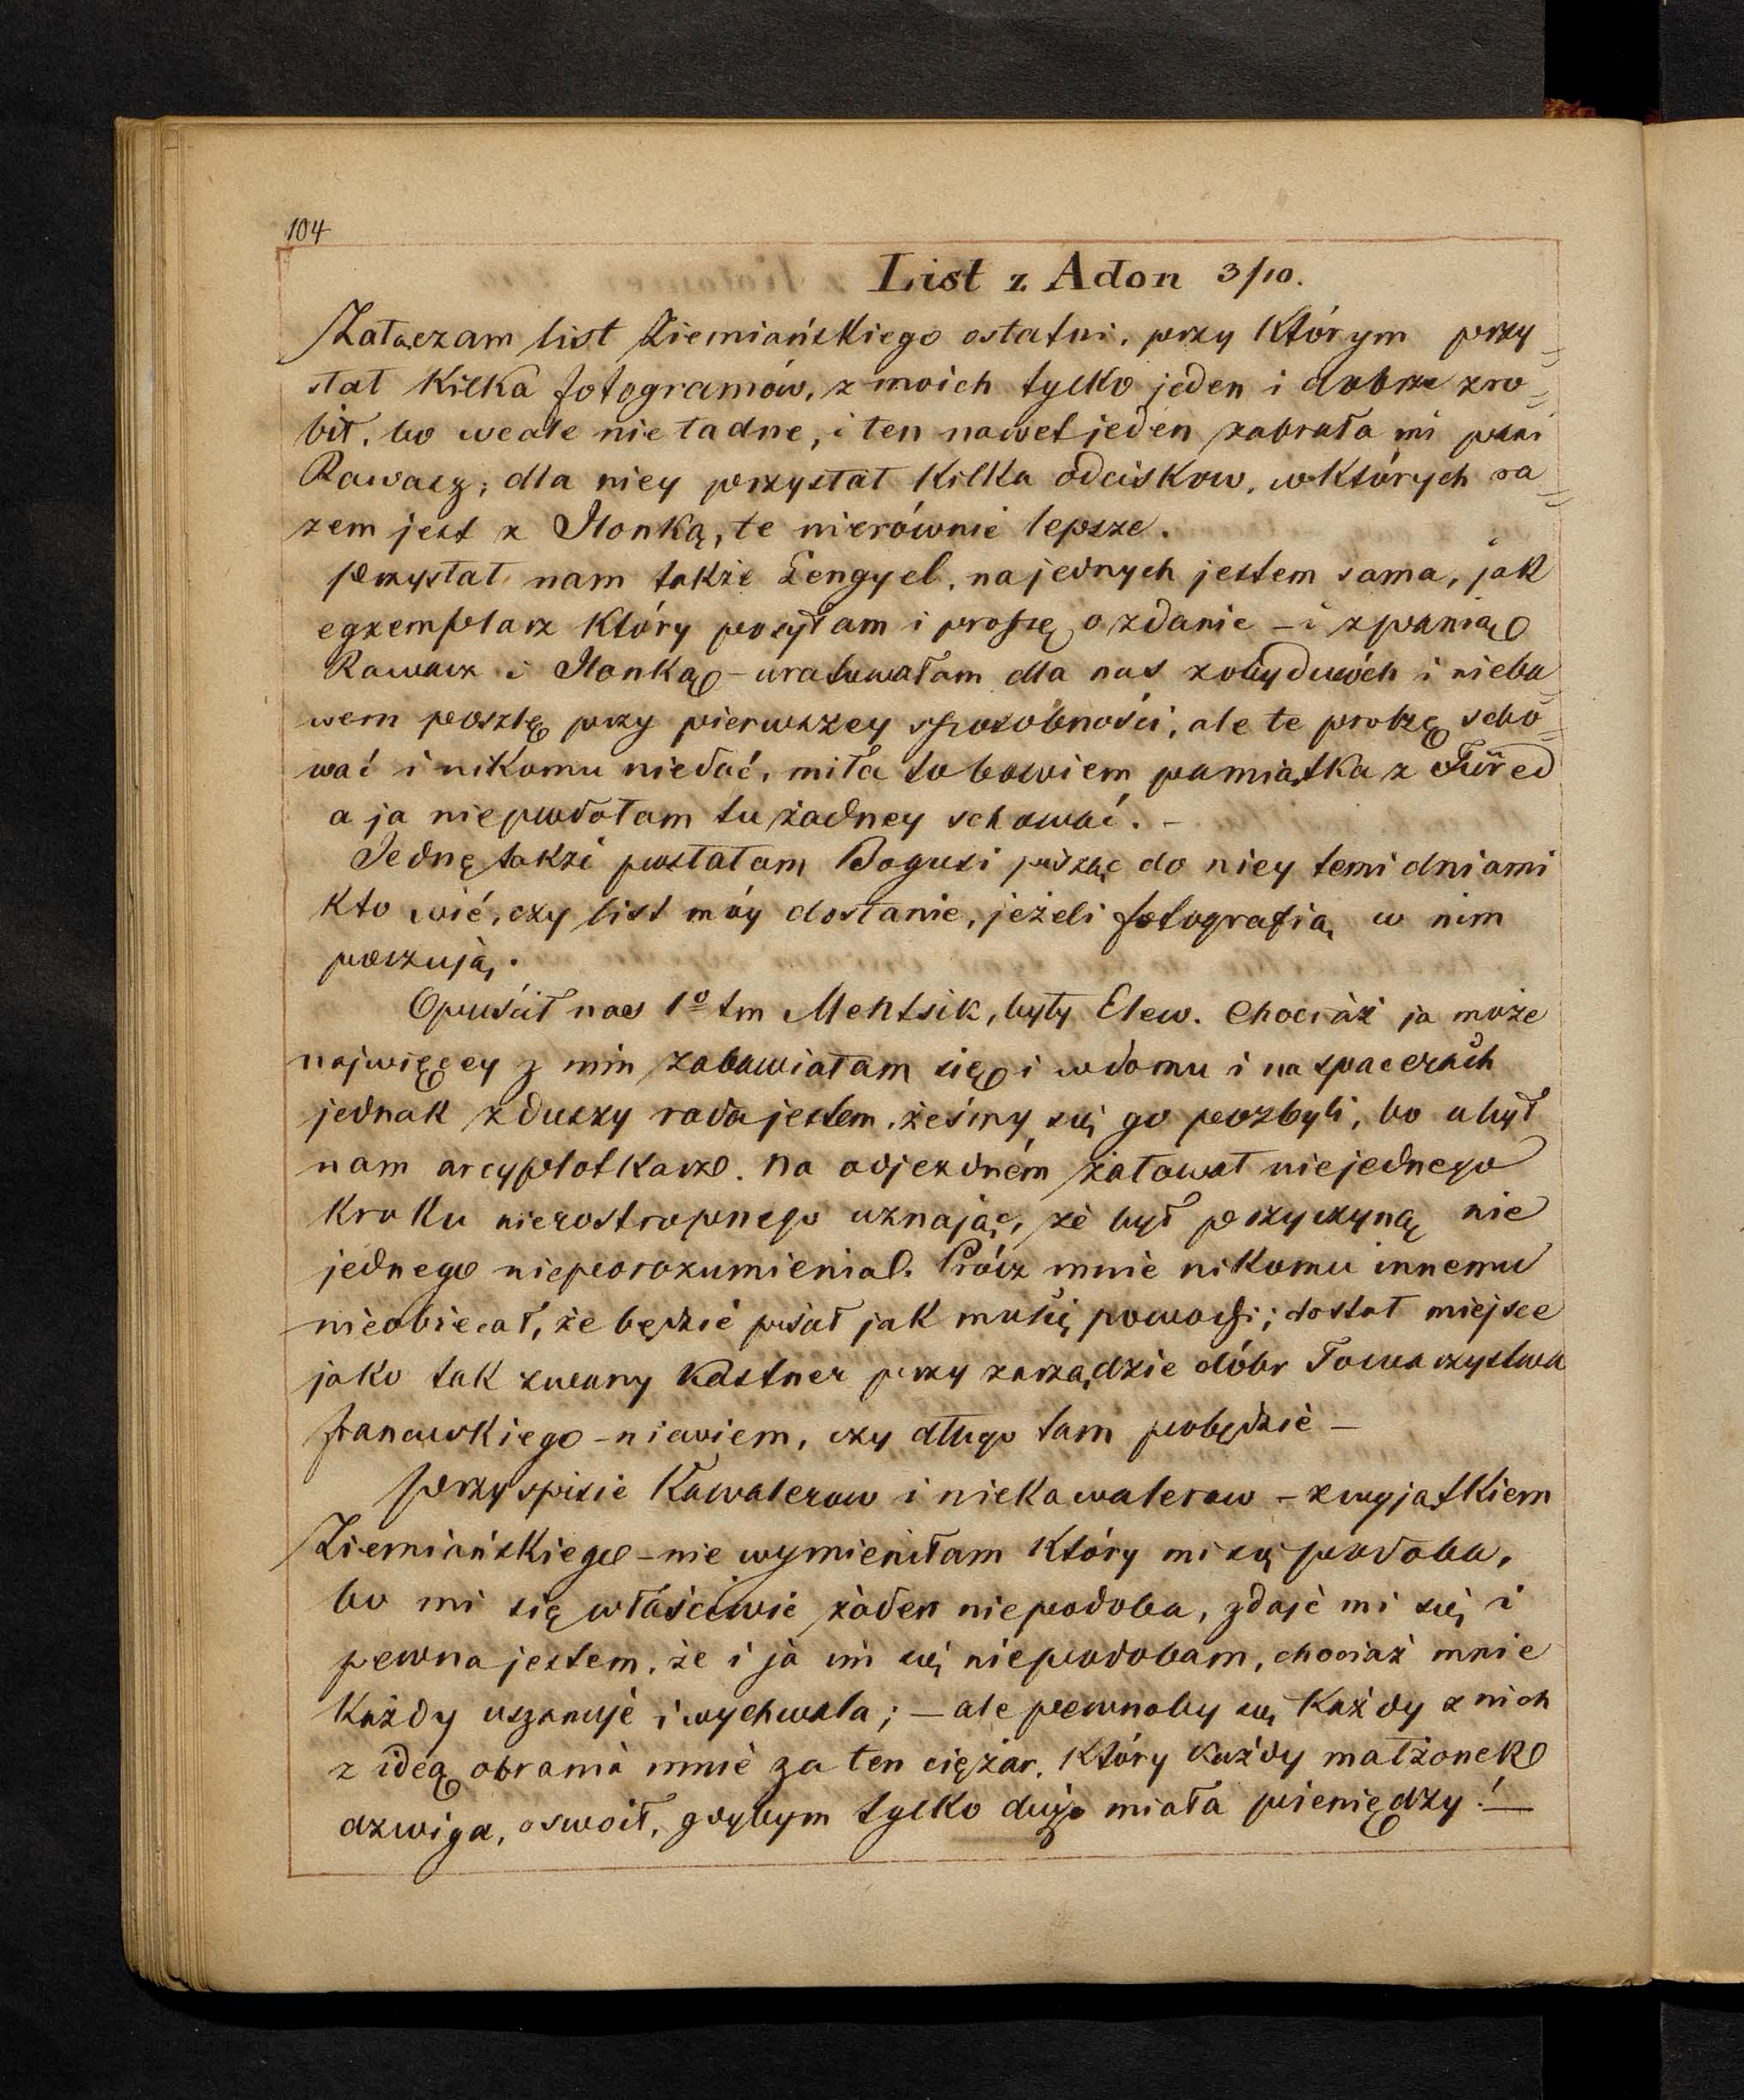 104
List z Adon 3/10.
Załączam list Ziemiańskiego ostatni, przy którym przy=
słał kilka fotogramów, z moich tylko jeden i dobrze zro=
bił, bo wcale nie ładne, i ten nawet jeden zabrała mi pani
Rawasz; dla niey przysłał kilka odciskow, w których ra=
zem jest z Ilonką, te nierównie lepsze.
Przysłał nam także Lengyel, na jednych jestem sama, jak
egzemplarz który posyłam i proszę o zdanie – i z panią
Rawasz i Ilonką – uratowałam dla nas z obydwóch i nieba=
wem poszlę przy pierwszey sposobności, ale te proszę scho=
wać i nikomu niedać, miła to bowiem pamiątka z Füred
a ja niepodołam tu żadney schować. –
Jednę także posłałam Bogusi pisząc do niey temi dniami
kto wié, czy list móy dostanie, jeżeli fotografią w nim
poczują.
Opuścił nas 1º tm Mentsik, były Elew. Chociaż ja może
najwięcey z nim zabawiałam się i w domu i na spacerach
jednak z duszy rada jestem, żeśmy się go pozbyli, bo a był
nam arcyplotkarz. Na odjezdném żałował niejednego
kroku nierostropnego uznając, że był przyczyną nie
jednego nieporozumienia. Prócz mnie nikomu innemu
nieobiecał, że będzie pisał jak mu się powodzi; dostał miejsce
jako tak zwany Kastner przy zarządzie dóbr Towarzystwa
franauskiego – niewiem, czy długo tam pobędzie –
Przy spisie Kawalerow i niekawalerow – z wyjątkiem
Ziemiańskiego – nie wymieniłam który mi się podoba,
bo mi się właściwie żaden niepodoba, zdaje mi się i
pewna jestem, że i ja im się niepodobam, chociaż mnie
każdy uszanuje i wychwala; – ale pewnoby się każdy z nich
z ideą obrania mnie za ten ciężar, który każdy małżonek
dzwiga, oswoił, gdybym tylko dużo miała pieniędzy! –